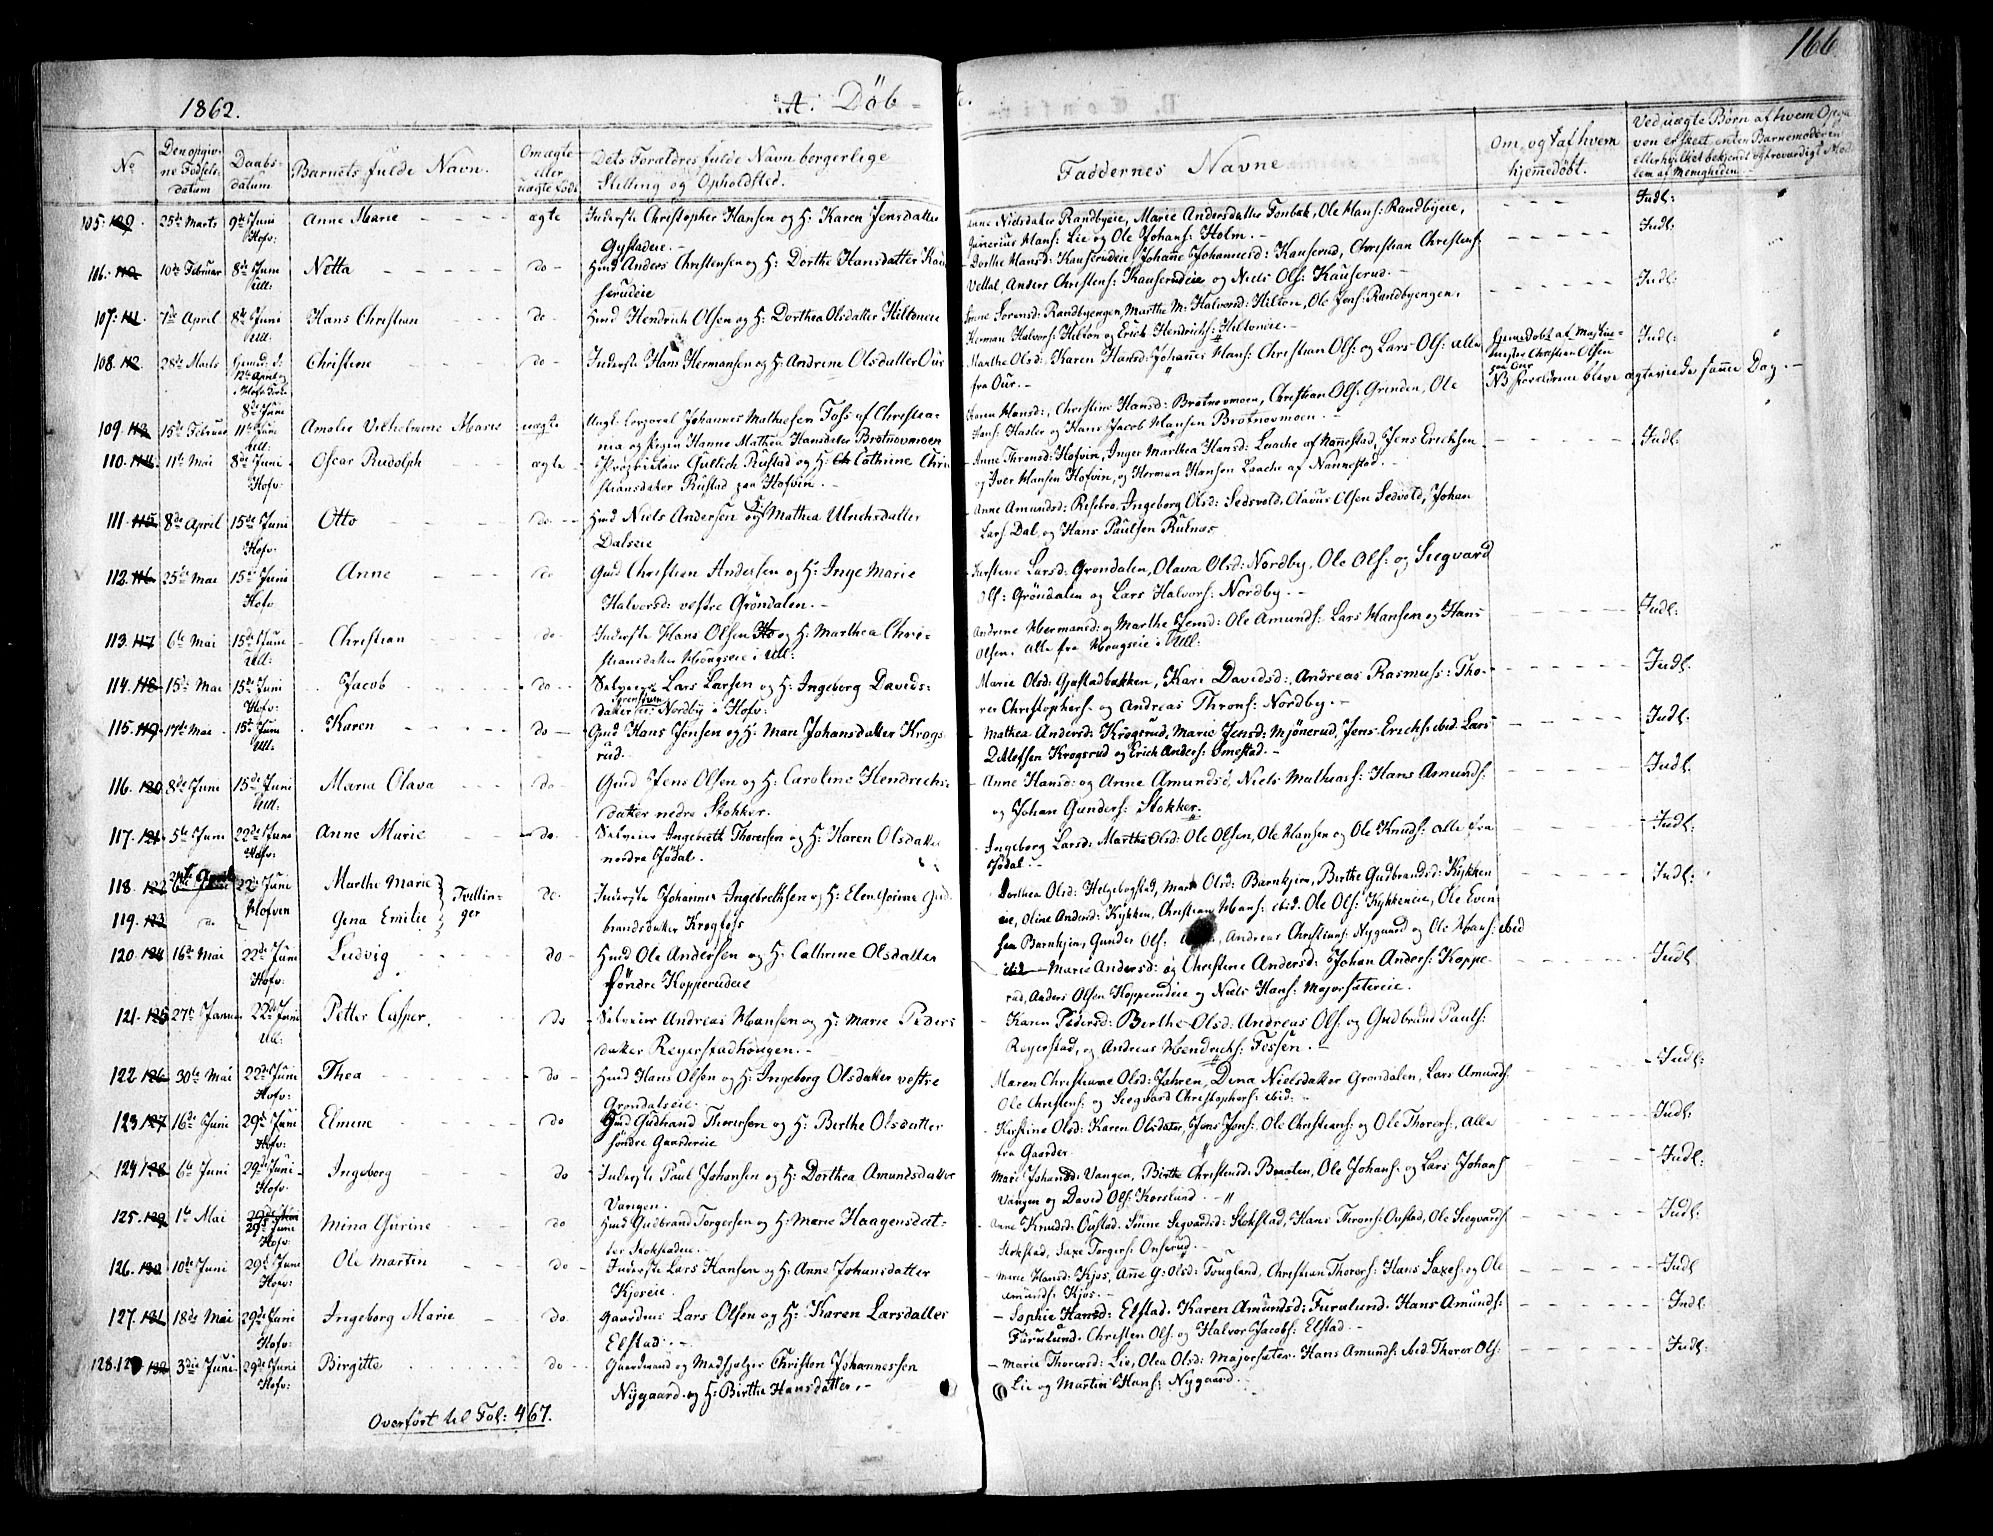 166
1862.
A. Döb-
te.
No
Den opgiv-
ne Födsels-
datum
Daabs-
datum
Barnets fulde Navn.
Om ægte
eller
uægte født
Dets Forældres fulde Navn borgerlige
Stilling og Opholdsted.
Faddernes Navne
Om og af hvem
hjemmedøbt.
Ved uægte Børn af hvem Opgi-
ven er skeet, enten Barnemoderen
eller hvilket bekjendt og troværdigt Med-
lem af Menigheden
105. 109. 25de Marts 9de Juni Anne Marie ægte Inderste Christopher Hansen og H: Karen Jensdatter
Hofv: Gystadeie.
Anne Nielsdatter Randbyeie, Marie Andersdatter Tonbæk, Ole Hans: Randbyeie, Indl:
Hans: Lie og Ole Johans: Holm.
106. 110 10de Februar 8de Juni Netta do Hmd Anders Christensen og H: Dorthe Hansdatter Kau-
Ull: serudeie
Dorthe Hansd: Kauserudeie, Johanne Johannesd: Kauserud, Christian Christens: Indl:
Vettal, Anders Christens: Kauserudeie og Niels Ols: Kauserud.
107. 111 7de April 8de Juni Hans Christian do Hmd Hendrich Olsen og H: Dorthea Olsdatter Hiltoneie
Ull:
Anne Sorensd: Randbyengen, Marthe M: Halvorsd: Hilton, Ole Jens: Randbyengen, Indl:
Herman Halvors: Hilton og Erich Hendrichs: Hiltoneie.
108. 112 28de Marts Christine do Inderste Hans Hermansen og H: Andrine Olsdatter Our
12te April
8de Juni
Marthe Olsd: Karen Hansd: Johannes Hans: Christian Ols: og Lars Ols: alle
fra Our.
Hjemmedøbt af Maskin-
mester Christian Olsen
paa Our Indl:
NB Forældrene bleve ægteviede samme Dag.
109. 113 15de Februar 11te Juni Amalie Vilhelmine Marie uægte Ungk: Corporal Johannes Mathiesen Foss af Christia-
Ull: nia og Pigen Hanne Mathea Hansdatter Brotnovmoen
Karen Hansd:, Christine Hansd: Brotnovmoen, Christian Ols: Grinden, Ole
Hans: Hasler og Hans Jacob Hansen Brotnovmoen.
110. 114 11te Mai 8de Juni Oscar Rudolph ægte Gullich Rustad og H: Cathrine Chri-
Hofv: stiansdatter Rustad paa Hofvin.
Anne Thronsd: Hofvin, Inger Marthea Hansd: Laache af Nannestad, Jens Ericksen Indl:
og Iver Hansen Hofvin, og Herman Hansen Laache af Nannestad.
111 115 8de April 15de Juni Otto do Hmd Niels Andersen og H: Mathea Ulrichsdatter
Hofv: Dalseie
Anne Amundsd: Risebro, Ingeborg Olsd: Sedsvold, Olavus Olsen Sedvold, Johan
Lars: Dal, og Hans Paulsen Rulnæs
112. 116. 25de Mai 15de Juni Anne do Gmd Christian Andersen og H: Inge Marie
Hofv Halvorsd: vestre Gröndalen.
Kirstine Larsd: Grondalen, Olava Olsd: Nordby, Ole Ols: og Siegvard
Ols: Gröndalen og Lars Halvors: Nordby.
113. 117 6te Mai 15de Juni Christian do Inderste Hans Olsen og H: Marthea Chri-
Ull: stiansdatter Hougseie i Ull:
Andrine Hermansd: og Marthe Jensd: Ole Amunds: Lars Hansen og Hans Indl:
Olsen, Alle fra Hougseie i Ull:
114. 118 15de Mai 15de Juni Jacob do Selveier Lars Larsen og H: Ingeborg Davids-
Hofv: datter Nordby i Hofv:
Marie Olsd: Gystadbakken, Kari Davidsd:, Andreas Rasmus: Tho- Indl.
rer Christophers: og Andreas Throns: Nordby.
115. 119 17de Mai 15de Juni Karen do Gmd Hans Jensen og H: Mari Johansdatter Krogs-
Ull: rud.
Mathea Andersd: Krogsrud, Marie Jensd: Mjönerud, Jens Ericks: ibid. Lars Indl:
Ditlefsen Krogsrud og Erich Anders: Omestad.
116. 120 8de Juni 15de Juni Maria Olava do Gmd Jens Olsen og H: Caroline Hendrichs-
Ull: datter nedre Stokker.
Anne Hansd: og Anne Amundsd, Niels Mathias: Hans Amunds: Indl:
og Johan Gunders: Stokker.
117. 121. 5te Juni 22de Juni Anne Marie do. Selveier Ingebreth Thoresen og H: Karen Olsdatter
Hofv: nordre Jödal.
Ingeborg Larsd: Marthe Olsd: Ole Olsen, Ole Hansen og Ole Knuds: alle fra Indl:
Jödal.
118. 122 22de Juni Marthe Marie Tvillin- do. Inderste Johannes Ingebrethsen og H: Elen Gorine Gud-
119. 123 do Hofven Gena Emilie ger brandsdatter Krogfoss
Dorthea Olsd: Helgebogstad, Mari Olsd: Barnkjern, Birthe Gudbrandsd: Kykken- Indl:
eie, Oline Andersd: Kykken, Christian Hans: ibid. Ole Ols: Kykkeneie, Ole Even-
sen Barnkjern, Gunder Ols: Andreas Christians: Nygaard og Ole Hans: ibid
120. 124 16de Mai 22de Juni Ludvig do Hmd Ole Andersen og H: Cathrine Olsdatter
Hofv: söndre Kopperudeie
ibid Marie Andersd: og Christine Andersd: Johan Anders: Koppe- Indl:
rud, Anders Olsen Kopperudeie og Niels Hans: Majorsætereie.
121. 125 27de 22de Juni Petter Casper. do Selveier Andreas Hansen og H: Marie Peders
Ull: datter Reyerstadhougen.
Karen Pedersd: Berthe Olsd: Andreas Ols: og Gudbrand Pauls:
Reyerstad, og Andreas Hendrichs: Fossen.
122 126 30te Mai 22de Juni Thea do Hmd Hans Olsen og H: Ingeborg Olsdatter vestre
Hofv: Grondalseie.
Maren Christiane Olsd: Jahren, Dina Nielsdatter Grondalen, Lars Amunds: Indl:
Ole Christens: og Siegvard Christophers: ibid:
123 127 16de Juni 29de Juni Elmine do Hmd Gudbrand Thoresen og H: Berthe Olsdatter
Hofv: söndre Gaardereie
Kirstine Olsd: Karen Olsdater, Jens Jens: Ole Christians: og Ole Thorers:, alle Indl:
fra Gaarder
124 128 6te Juni 29de Juni Ingeborg do Inderste Paul Johansen og H: Dorthea Amundsdatter
Hofv: Vangen.
Mari Johansd: Vangen, Birthe Christensd: Braaten, Ole Johans: og Lars Johans: Indl:
Vangen og David Ols: Korslund.
125. 129 1te Mai 29de Juni Mina Gurine do Hmd Gudbrand Torgersen og H: Marie Haagensdat-
Hofv: ter Stokstaden.
Anne Knudsd: Oustad. Sinne Siegvardsd: Stokstad, Hans Throns: Oustad, Ole Siegvards: Indl:
Stokstad, Saxe Torgers: Onserud.
126. 130 10de Juni 29de Juni Ole Martin do Inderste Lars Hansen og H: Anne Johansdatter
Hofv: Kjoseie.
Marie Hansd: Kjos, Anne G: Olsd: Tougland, Christian Thorers: Hans Saxes: og Ole Indl
Amunds: Kjos.
127. 131 18de Mai 29de Juni Ingeborg Marie do Gaardm: Lars Olsen og H: Karen Larsdatter
Hofv: Elstad.
Sophie Hansd: Elstad. Karen Amundsd: Furulund. Hans Amunds: Indl:
Furulund. Christen Ols: og Halvor Jacobs: Elstad.
128. 132 3die Juni 29de Juni Birgitte do Gaardmand og Medhjelper Christen Johannessen
Hofv: Nygaard og H: Birthe Hansdatter.
Marie Thorersd: Lie, Olea Olsd: Majorsæter. Hans Amunds: ibid Thorer Ols: Indl:
Lie og Martin Hans: Nygaard.
Overført til Fol: 467.